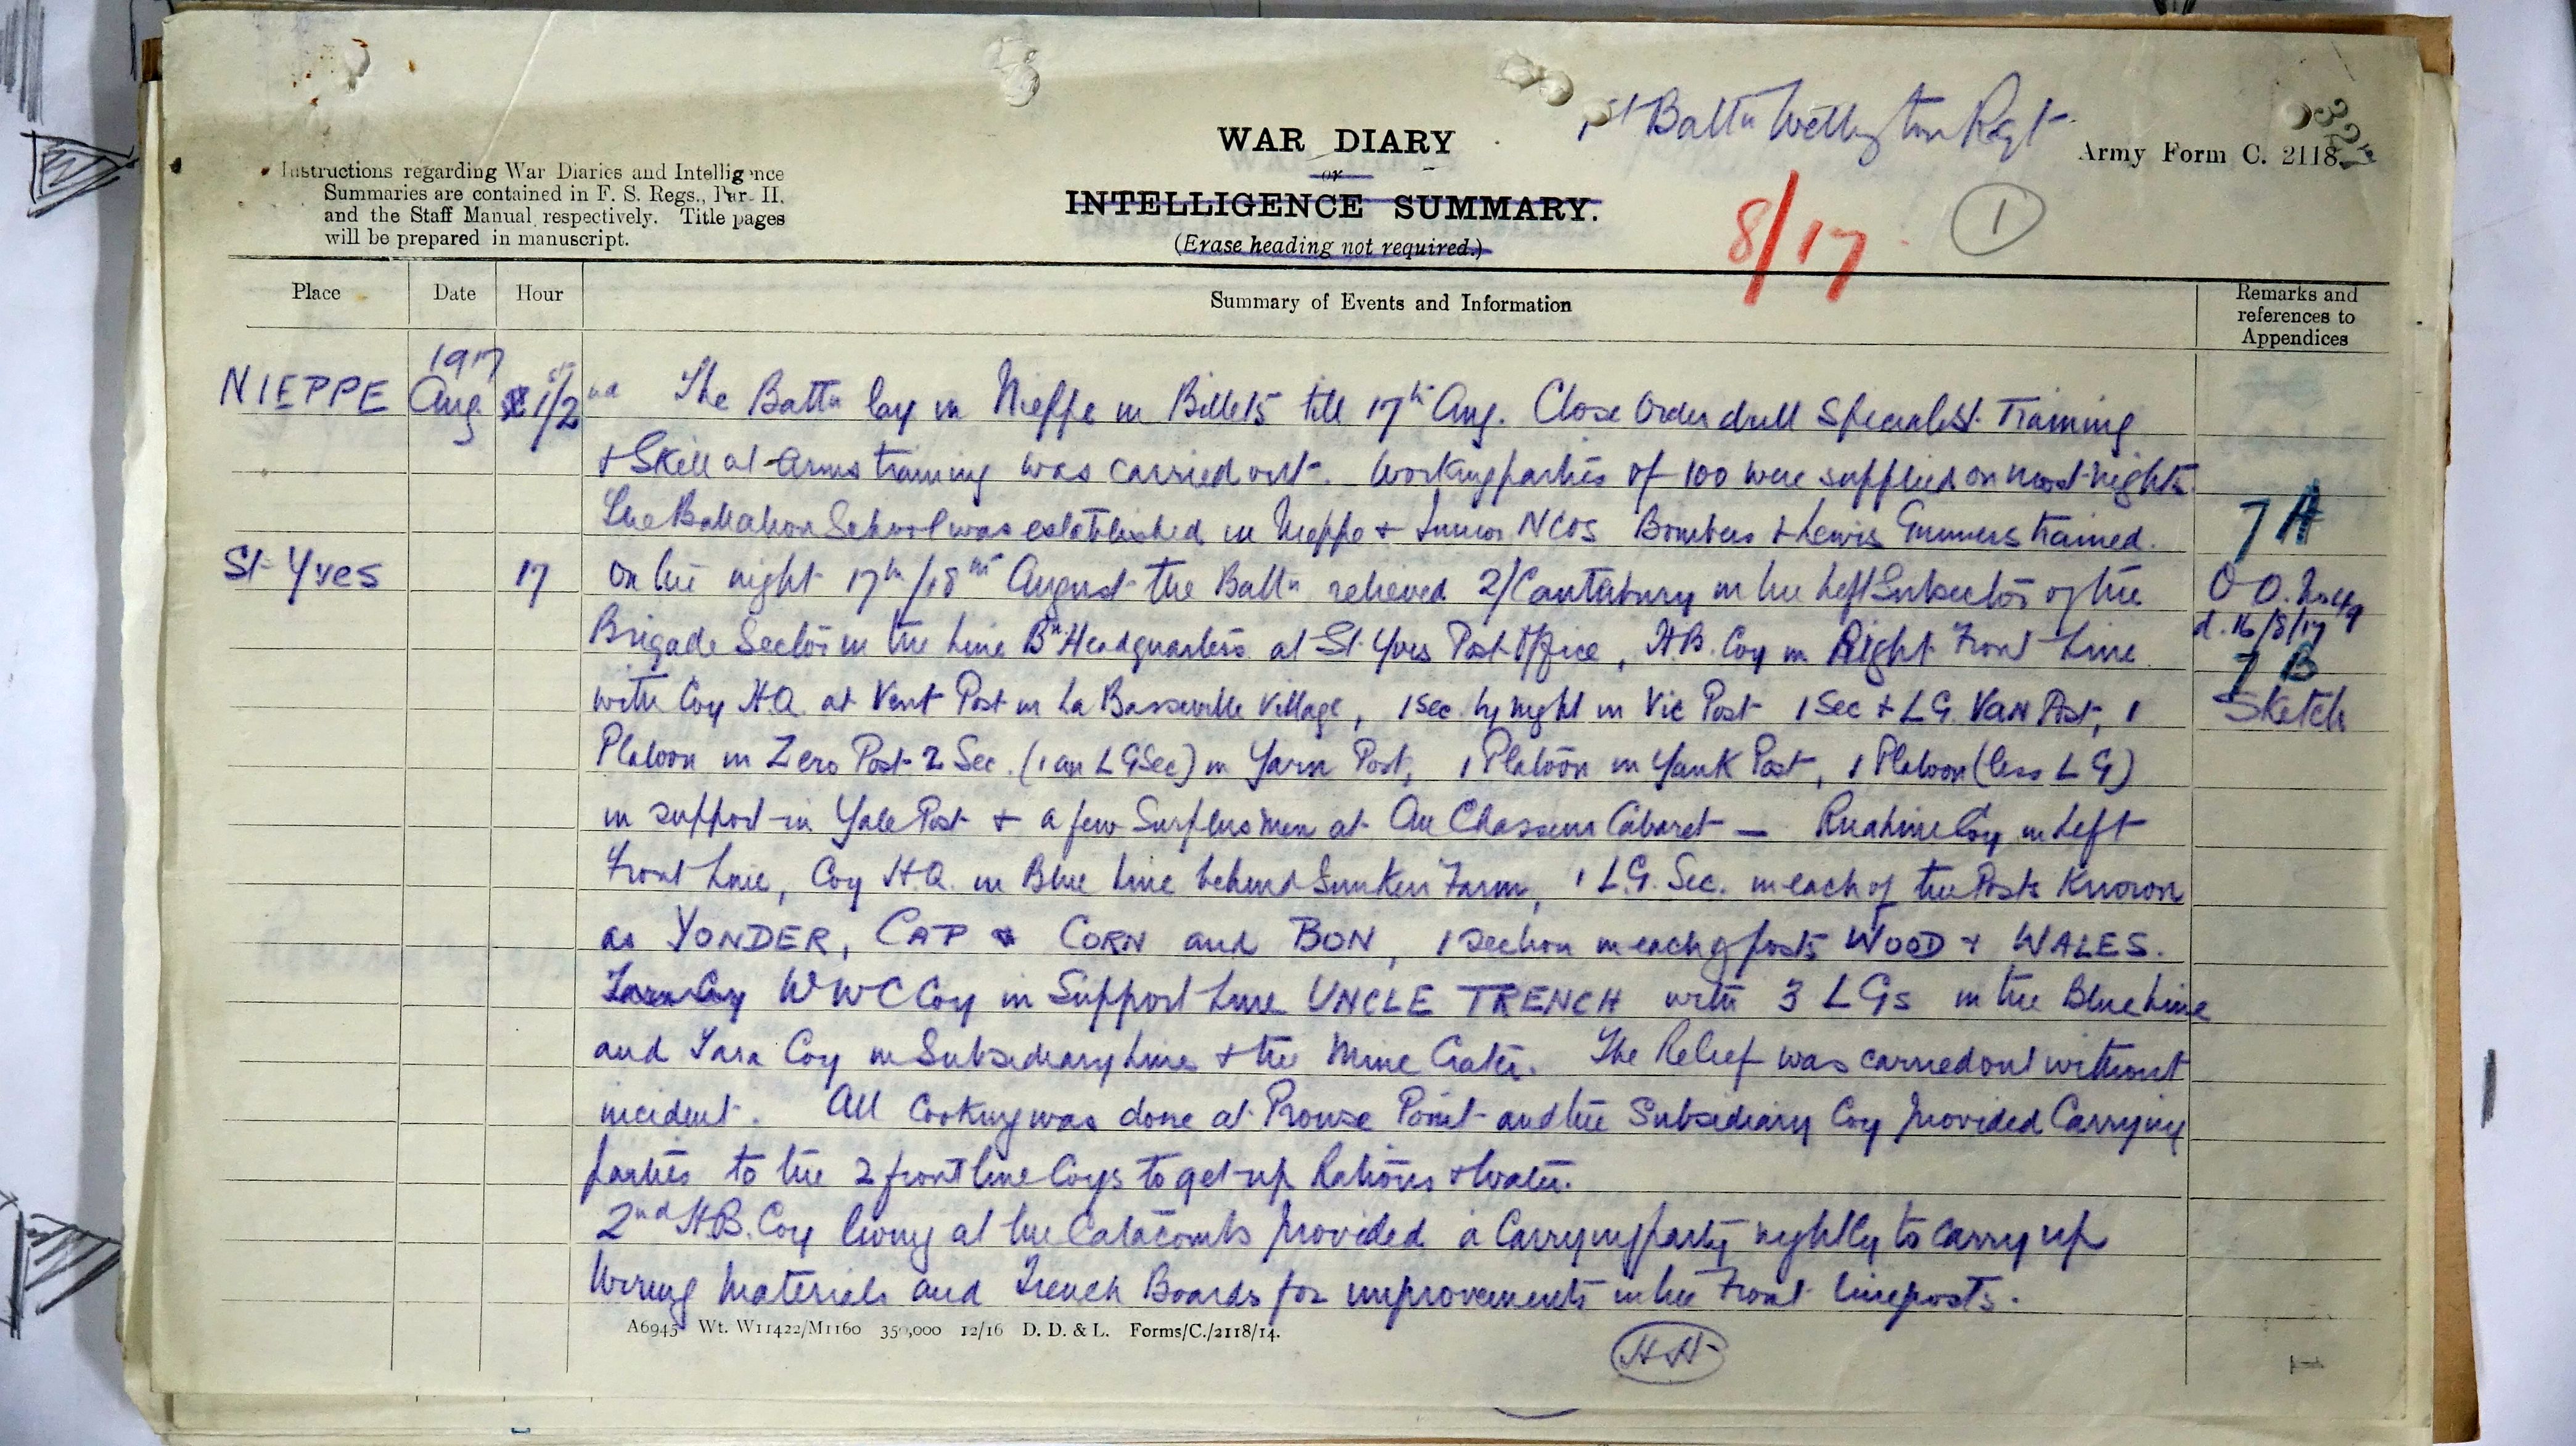 1st Battn Wellington Regt.
WAR DIARY
or
INTELLIGENCE SUMMARY.
(Erase heading not required.)
Army Form C. 2118.
Instructions regarding War Diaries and Intelligence
Summaries are contained in F. S. Regs., Part II.
and the Staff Manual respectively. Title pages
will be prepared in manuscript.
8/17
1
Place Date Hour Summary of Events and Information Remarks and references to Appendices
1917
NIEPPE Aug. 1st/2nd The Battn lay in Nieppe in Billets till 17th Aug. Close Order drill Specialist Training
& Skill at Arms training was carried out. Working parties of 100 were supplied on most nights.
The Battalion School was established in Nieppe & Junior NCOs Bombers & Lewis Gunners trained.
7A
St Yves 17 On the night 17th/18th August the Battn relieved 2/Cantabury in the Left Subsector of the
O O. No 49
Brigade Sector in the Line Bn Headquarters at St. Yves Post Office, H.B. Coy in Right Front Line
d. 16/8/17
7B
with Coy H.Q. at Vent Post in La Basseville Village, 1 Sec. by night in Vic Post 1 Sec & L.G. VAN Post, 1
Sketch
Platoon in Zero Post 2 Sec. (1 an L G Sec) in Yarn Post, 1 Platoon in Yank Post, 1 Platoon (less L G)
in support in Yale Post & a few Surplus men at Au Chasseur Cabaret — Ruahine Coy in Left
Front Line, Coy H.Q. in Blue Line behind Sunken Farm, 1 L.G. Sec. in each of the Posts known
as YONDER, CAP & CORN and BON, 1 section in each of posts WOOD & WALES.
Tara Coy WWC Coy in Support Line UNCLE TRENCH with 3 LGs in the Blue Line
and Tara Coy in Subsidiary Line & the Mine Crater. The Relief was carried out without
incident. All Cooking was done at Prowse Point and the Subsidiary Coy provided Carrying
parties to the 2 front line Coys to get up Rations & Water.
2nd H.B. Coy living at the Catacombs provided a Carrying party nightly to carry up
Wiring Materials and Trench Boards for improvements in the Front line posts.
A6945 Wt. W11422/M1160 350,000 12/16 D. D. & L. Forms/C./2118/14.